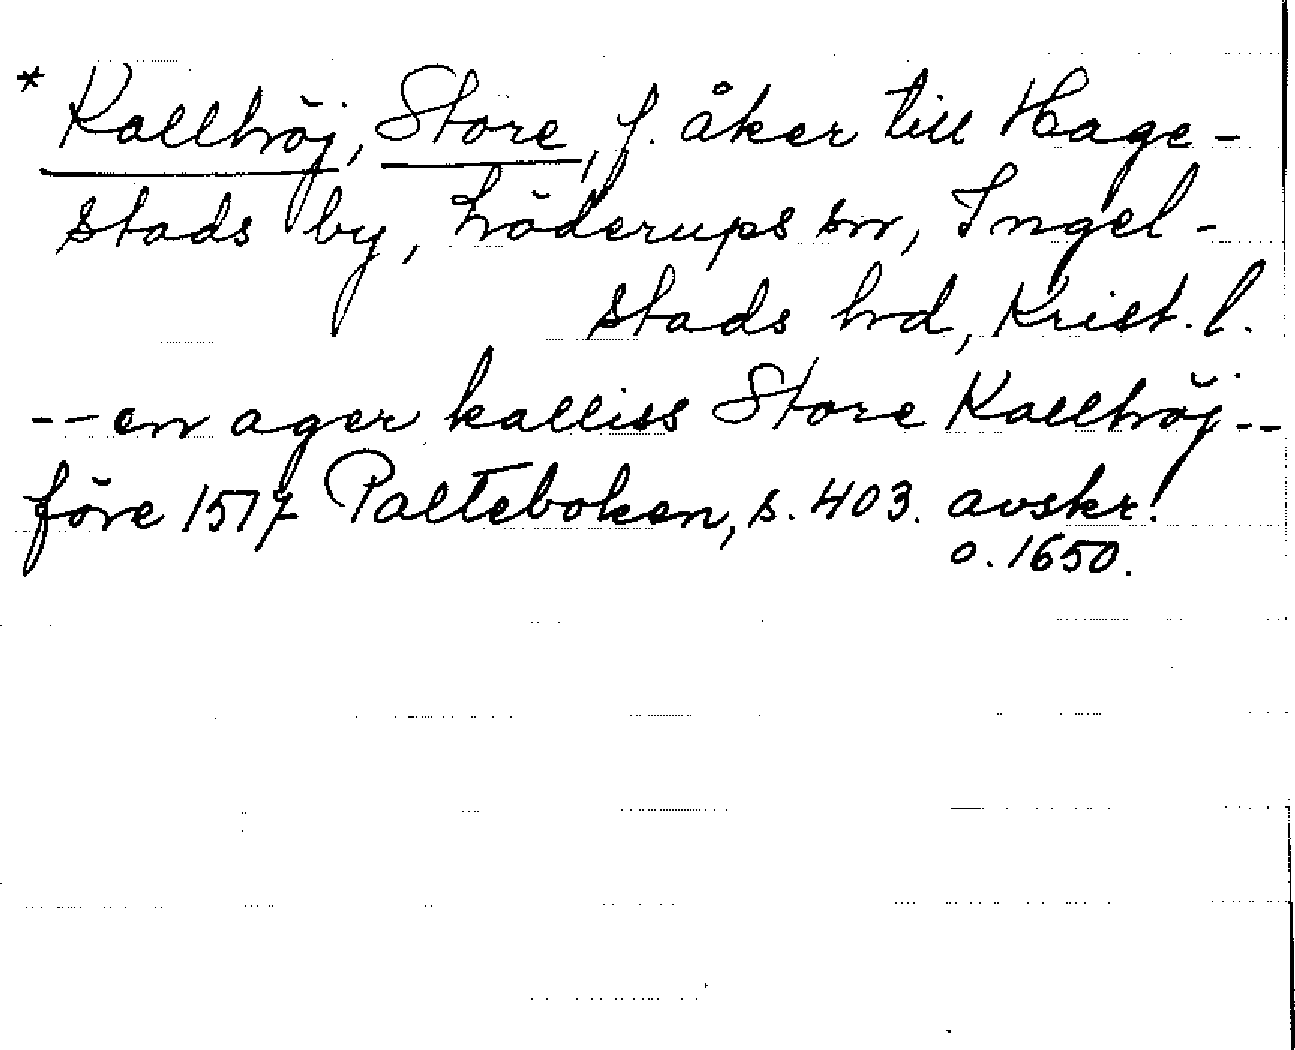 * Kallhöj, Store, f. åker till Hage-
stads by, Löderups sn, Ingel-
stads hd, Krist. l.
-- en ager kalliss Store Kallhöj --
före 1517 Palteboken, s. 403. avskr.
o. 1650.